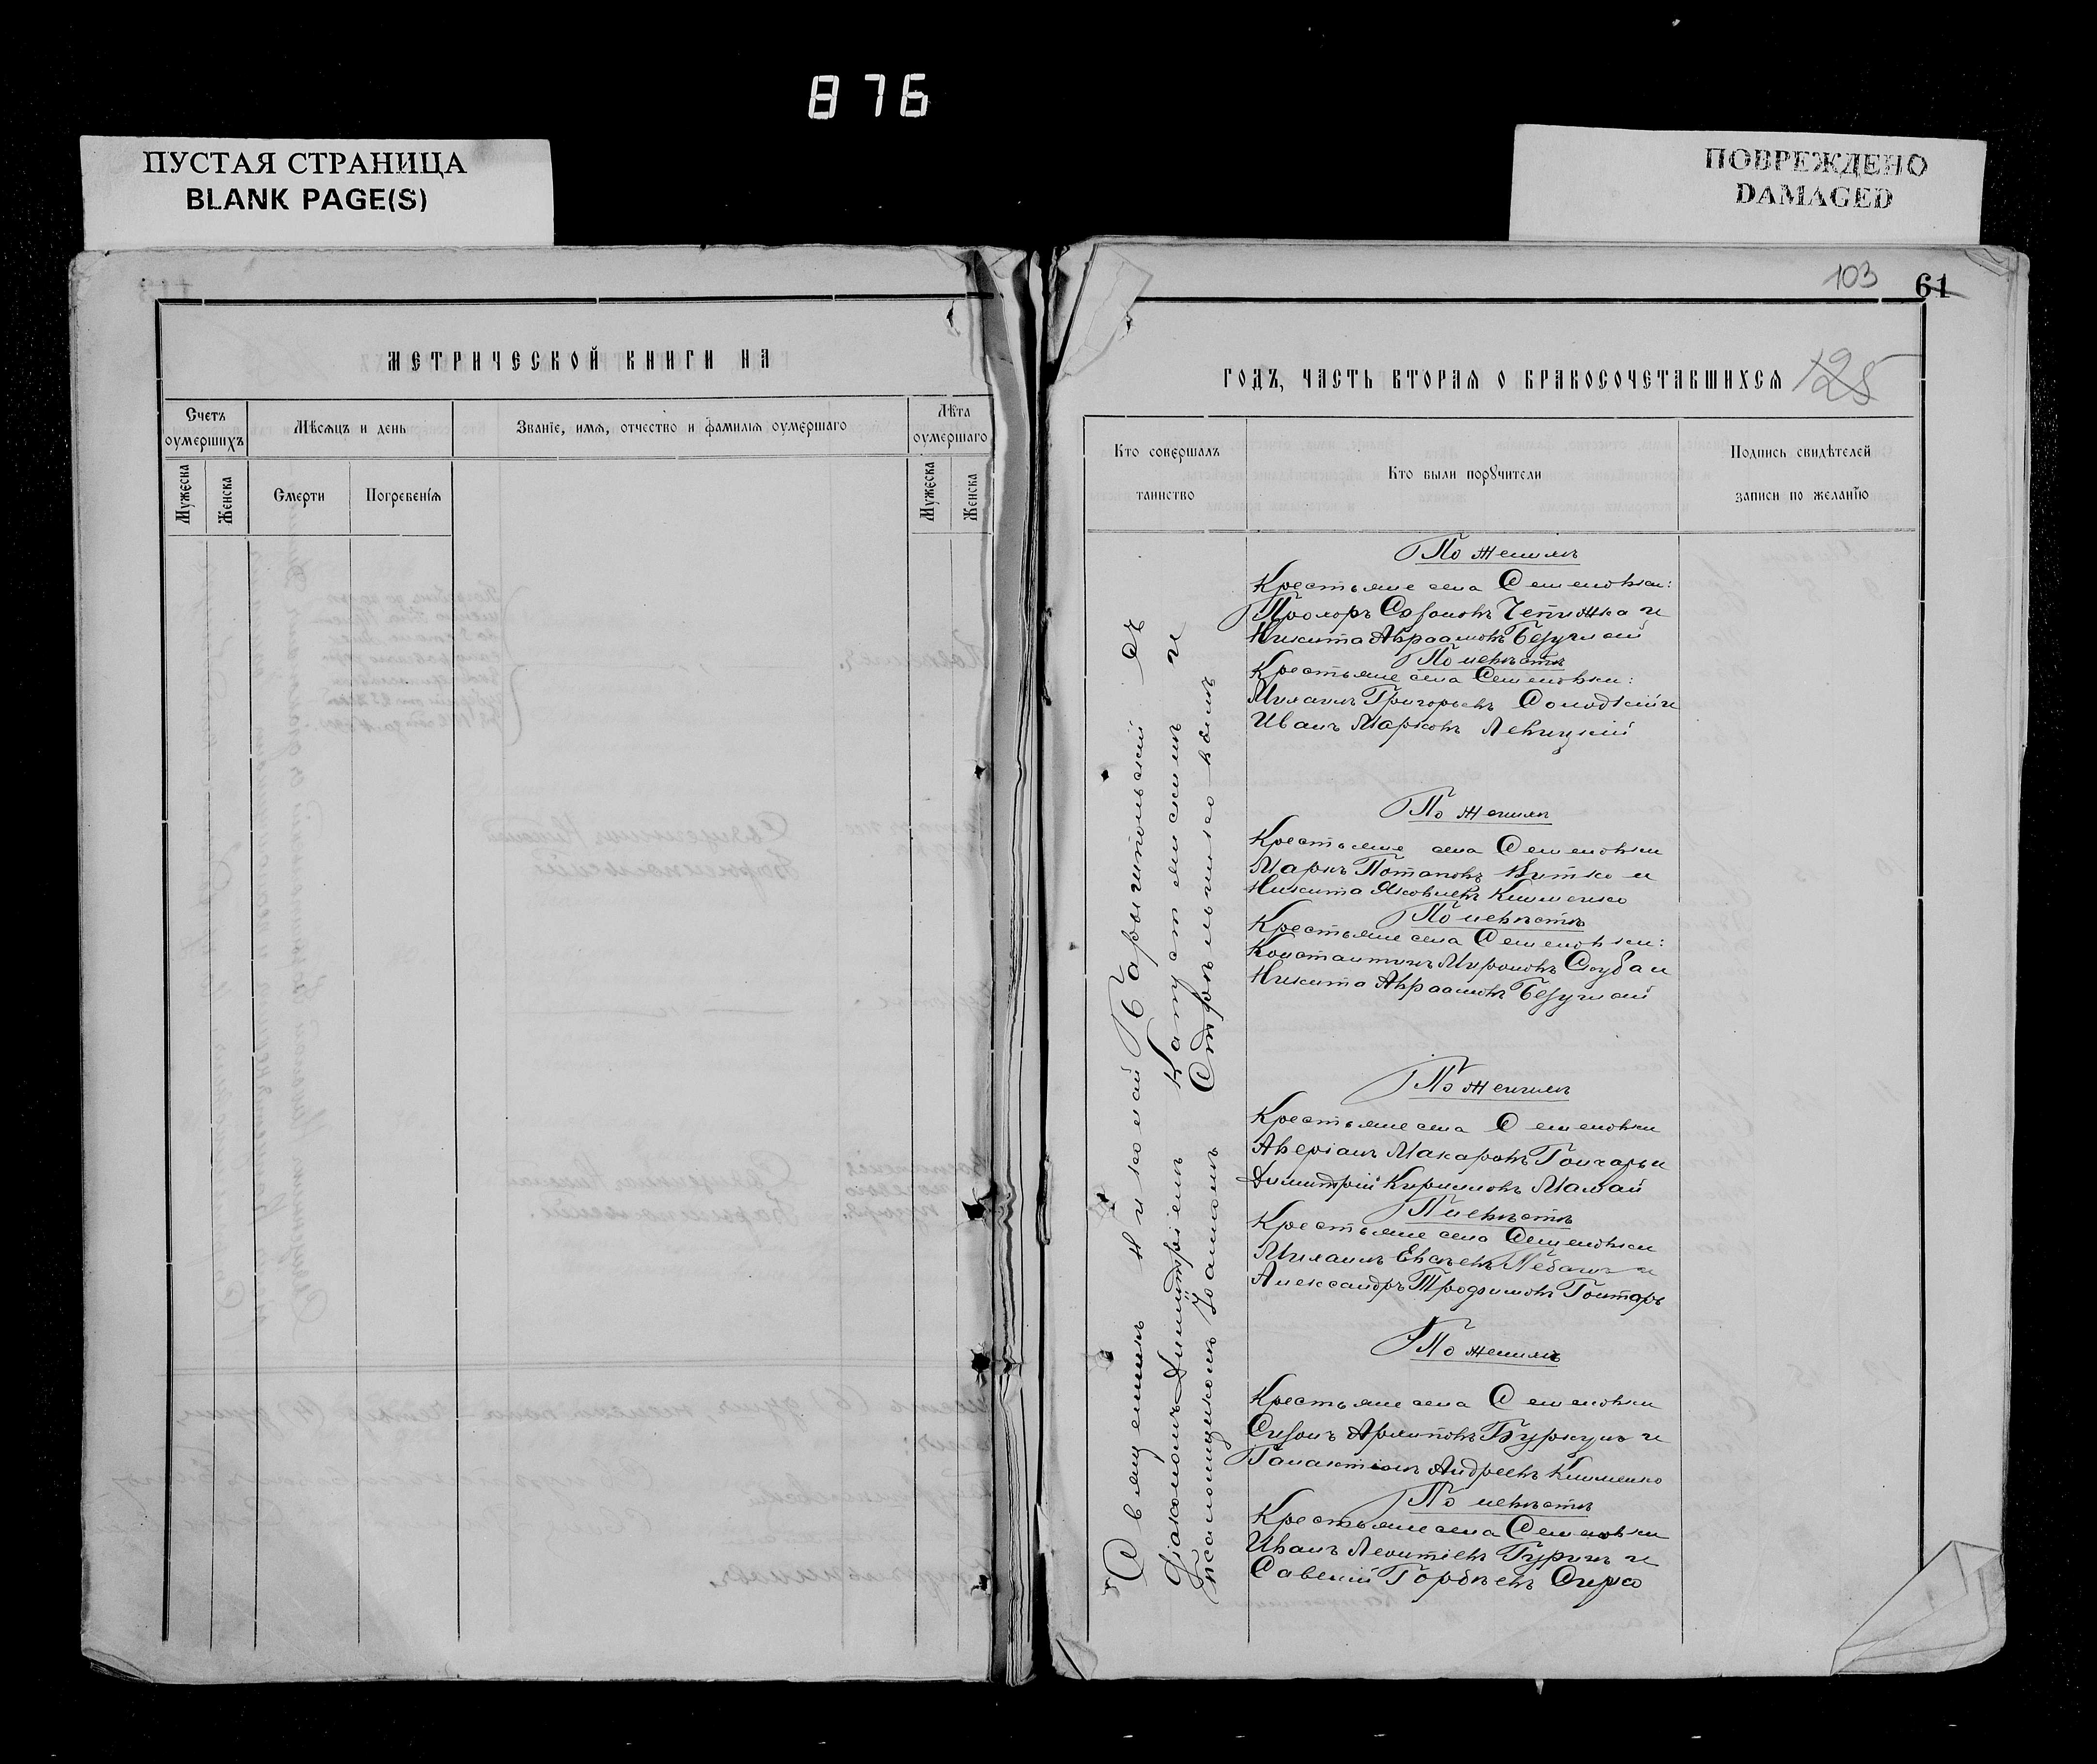 876
ПУСТАЯ СТРАНИЦА
BLANK PAGE(S)
ПОВРЕЖДЕНО
DAMAGED
МЕТРИЧЕСКОЙ КНИГИ НА
Счетъ оумершихъ
Мѣсяцъ и день
Званіе, имя, отчество и фамилія оумершаго
Лѣта оумершаго
Мужеска
Женска
Смерти
Погребенія
Мужеска
Женска
103
61
ГОДЪ, ЧАСТЬ ВТОРАЯ О БРАКОСОЧЕТАВШИХСЯ
125
Кто совершалъ таинство
Кто были порꙋчители
Подпись свидѣтелей записи по желанїю
Священникъ Николай Барышпольскій съ
діакономъ Димитріемъ Капустянскимъ и
псаломщикомъ Іоанномъ Стрѣльниковымъ
По женихѣ
Крестьяне села Семеновки:
Прохоръ Сазоновъ Чепижка и
Никита Авраамовъ Безуглый
По невѣстѣ
Крестьяне села Семеновки:
Михаилъ Григорьевъ Солодкій и
Иванъ Марковъ Левицкій
По женихѣ
Крестьяне села Семеновки
Маркъ Потаповъ Нитко и
Никита Яковлевъ Клименко
По невѣстѣ
Крестьяне села Семеновки:
Константинъ Мироновъ Скуба и
Никита Авраамовъ Безуглый
По женихѣ
Крестьяне села Семеновки
Аверіанъ Макаровъ Гончаръ и
Димитрій Кирилловъ Мамай
По невѣстѣ
Крестьяне села Семеновки
Михаилъ Евсѣевъ и
Александръ Трофимовъ Гонтарь
По женихѣ
Крестьяне села Семеновки
Сизонъ Архиповъ Буркунъ и
Галактіонъ Андреевъ Клименко
По невѣстѣ
Крестьяне села Семеновки
Иванъ Леонтіевъ Гуринъ и
Савелій Гордѣевъ Сирко